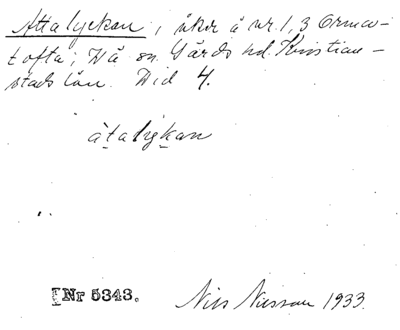 Åttalyckan, åker å nr. 1, 3 Ormas-
tofta; Vå sn. Gärds hd. Kristian-
stads län. Wid 4.
åtalykan
Nr 5343. Nils Nilsson 1933.